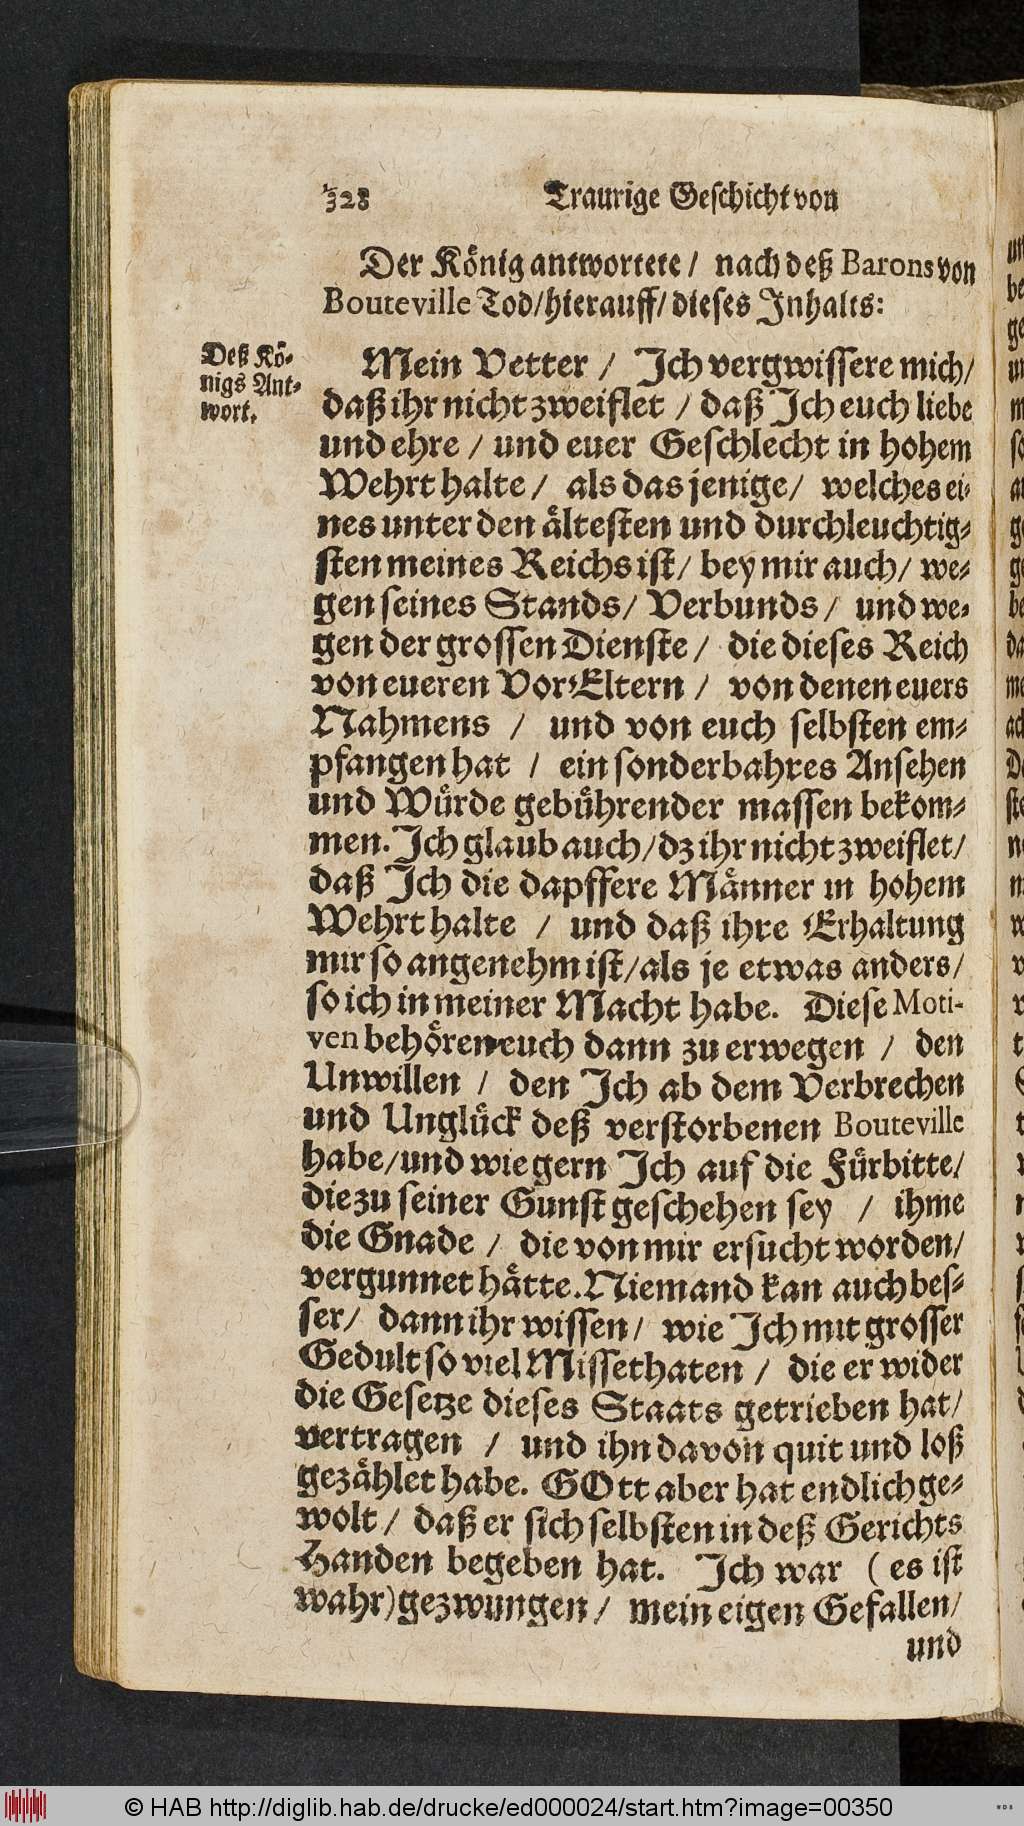 328 Traurige Geschicht von
Der König antwortete / nach deß Barons von
Bouteville Tod / hierauff / dieses Inhalts:
Deß Kö-
nigs Ant-
wort.
Mein Vetter / Ich vergwissere mich /
daß ihr nicht zweiflet / daß Ich euch liebe
und ehre / und euer Geschlecht in hohem
Wehrt halte / als das jenige / welches ei-
nes unter den ältesten und durchleuchtig-
sten meines Reichs ist / bey mir auch / we-
gen seines Stands / Verbunds / und we-
gen der grossen Dienste / die dieses Reich
von eueren VorEltern / von denen euers
Nahmens / und von euch selbsten em-
pfangen hat / ein sonderbahres Ansehen
und Würde gebührender massen bekom-
men. Ich glaub auch / dz ihr nicht zweiflet /
daß Ich die dapffere Männer in hohem
Wehrt halte / und daß ihre Erhaltung
mir so angenehm ist / als je etwas anders /
so ich in meiner Macht habe. Diese Moti-
ven behören euch dann zu erwegen / den
Unwillen / den Ich ab dem Verbrechen
und Unglück deß verstorbenen Bouteville
habe / und wie gern Ich auf die Fürbitte /
die zu seiner Gunst geschehen sey / ihme
die Gnade / die von mir ersucht worden /
vergunnet hätte. Niemand kan auch bes-
ser / dann ihr wissen / wie Ich mit grosser
Gedult so viel Missethaten / die er wider
die Gesetze dieses Staats getrieben hat /
vertragen / und ihn davon quit und loß
gezählet habe. GOtt aber hat endlich ge-
wolt / daß er sich selbsten in deß Gerichts
Handen begeben hat. Ich war (es ist
wahr) gezwungen / mein eigen Gefallen /
und
© HAB http://diglib.hab.de/drucke/ed000024/start.htm?image=00350